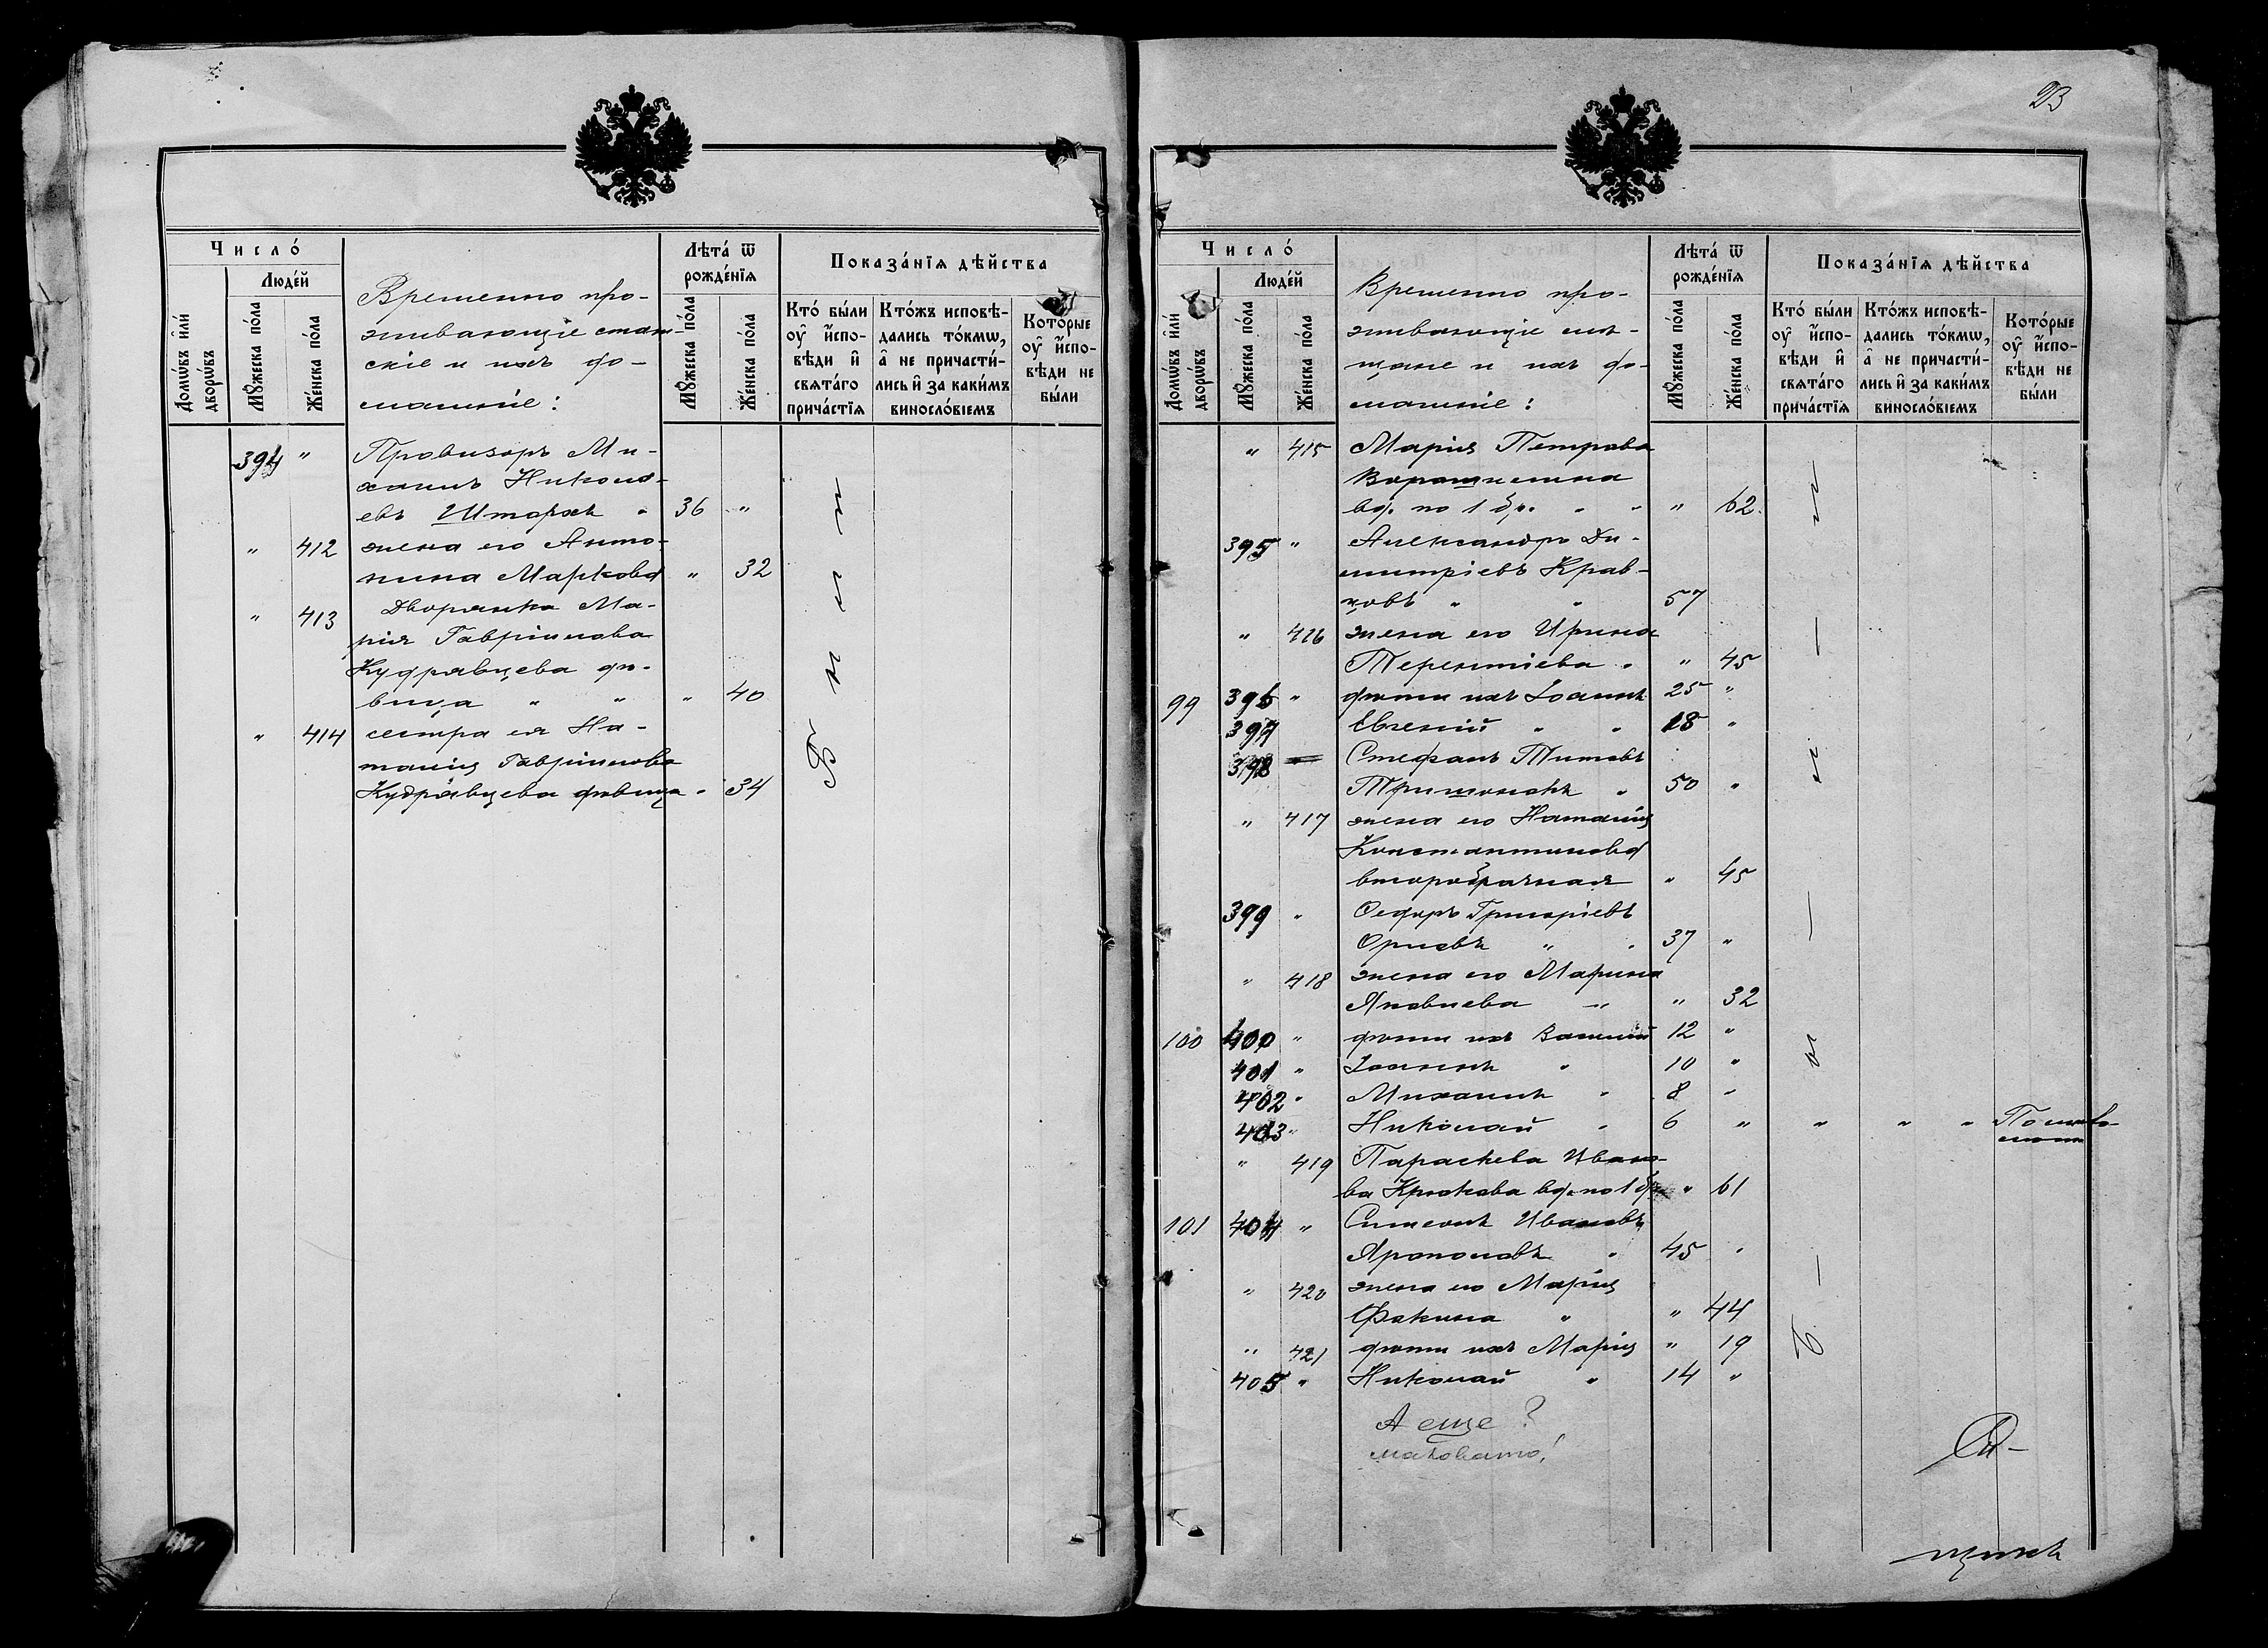 Число́
Люде́й
Домѡ́въ и҆лѝ дворѡ́въ
Мꙋ́жеска по́ла
Же́нска по́ла
Временно про-
живающіе стат-
скіе и ихъ до-
машніе:
Лѣта́ ѿ рожде́нїѧ
Мꙋ́жеска по́ла
Же́нска по́ла
Показа́нїѧ дѣ́йства
Кто́ бы́ли оу҆ и҆спо-
вѣди и҆
свѧта́го
прича́стїѧ
Кто́жъ исповѣ́-
дались то́кмѡ,
а҆ не причасти́-
лись и҆ за каки́мъ
винослоⷡ́вїемъ
Кото́рые
оу҆ и҆спо-
вѣди не
бы́ли
394 " Провизоръ Ми-
хаилъ Никола-
евъ Шторхъ " 36 "
" 412 жена его Анто-
нина Маркова " 32
" 413 Дворянка Ма-
рія Гавріилова
Кудрявцева дѣ-
вица " " " 40
" 414 сестра ея На-
талія Гавріилова
Кудрявцева дѣвица " 34
Б ы л и
23
Число́
Люде́й
Домѡ́въ и҆лѝ дворѡ́въ
Мꙋ́жеска по́ла
Же́нска по́ла
Временно про-
живающіе мѣ-
щане и ихъ до-
машніе:
Лѣта́ ѿ рожде́нїѧ
Мꙋ́жеска по́ла
Же́нска по́ла
Показа́нїѧ дѣ́йства
Кто́ бы́ли
оу҆ и҆спо-
вѣди и҆
свѧта́го
прича́стїѧ
Кто́жъ исповѣ́-
дались то́кмѡ,
а҆ не причасти́-
лись и҆ за каки́мъ
винослоⷡ́вїемъ
Кото́рые
оу҆ и҆спо-
вѣди не
бы́ли
" 415 Марія Петрова
вд. по 1 бр. " " " 62
395 " Александръ Ди-
митріевъ Крав-
цовъ " " 57
" 416 жена его Ирина
Терентіева " " 45
99 396 " дѣти ихъ Іоаннъ 25 "
397 Евгеній " " 18 "
398 Стефанъ Титовъ
50 "
" 417 жена его Наталія
Константинова
второбрачная " 45
399 " Ѳедоръ Григоріевъ
Орловъ " " 37 "
" 418 жена его Марина
Яковлева " " 32
100 400 " дѣти ихъ Василій 12 "
401 " Іоаннъ " 10 "
402 " Михаилъ " 8 "
403 " Николай " 6 " " " "
" 419 Параскева Ивано-
ва Крюкова вд. по 1 бр. " 61
101 404 " Симеонъ Ивановъ
45 "
" 420 жена его Марія
Фокина " " 44
" 421 дѣти ихъ Марія " 19
405 " Николай " 14 "
Б — ы — л — и
А еще?
маловато!